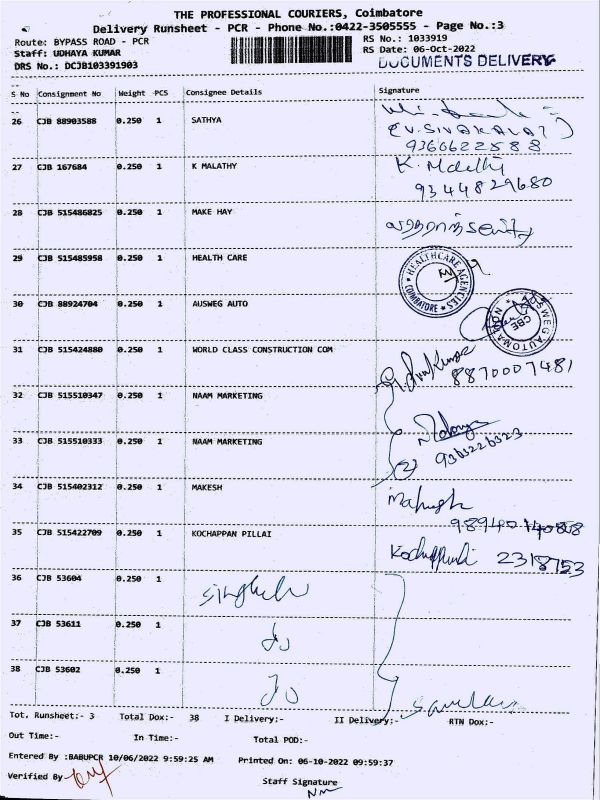 THE PROFESSIONAL COURIERS, Coimbatore
Delivery Runsheet - PCR - Phone No.:0422-3505555 - Page No.:3
Route: BYPASS ROAD - PCR
RS No.: 1033919
Staff: UDHAYA KUMAR
RS Date: 06-Oct-2022
DRS No.: DCJB103391903
DOCUMENTS DELIVERY
S No Consignment No Weight PCS Consignee Details Signature
26 CJB 88903588 0.250 1 SATHYA
(V.SIVAKALAI)
9360622588
27 CJB 167684 0.250 1 K MALATHY K. Malathy
9344829680
28 CJB 515486825 0.250 1 MAKE HAY
29 CJB 515485958 0.250 1 HEALTH CARE
HEALTHCARE AGENCIES
COIMBATORE
30 CJB 88924704 0.250 1 AUSWEG AUTO
CBE
31 CJB 515424880 0.250 1 WORLD CLASS CONSTRUCTION COM
8870007481
32 CJB 515510347 0.250 1 NAAM MARKETING
33 CJB 515510333 0.250 1 NAAM MARKETING
9363226323
(2)
34 CJB 515402312 0.250 1 MAKESH Mahesh
35 CJB 515422709 0.250 1 KOCHAPPAN PILLAI
2318753
36 CJB 53604 0.250 1
37 CJB 53611 0.250 1 do
38 CJB 53602 0.250 1 do
Tot. Runsheet:- 3 Total Dox:- 38 I Delivery:- II Delivery:- RTN Dox:-
Out Time:- In Time:- Total POD:-
Entered By :BABUPCR 10/06/2022 9:59:25 AM Printed On: 06-10-2022 09:59:37
Verified By
Staff Signature